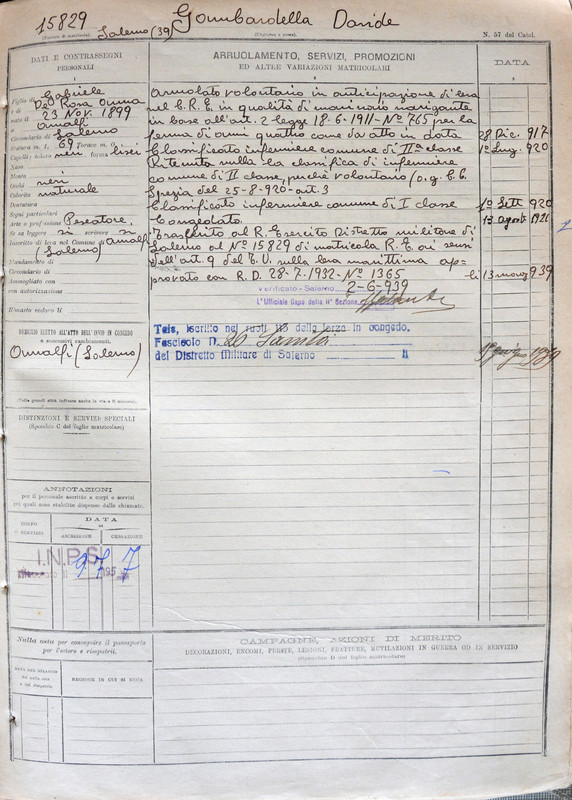 15829
Salerno (39)
Gambardella Davide
(Cognome e nome)
N. 57 del Catal.
DATI E CONTRASSEGNI
PERSONALI
1
Figlio di Gabriele
e di De Rosa Anna
nato il 23 Nov. 1899
Amalfi
Circondario di Salerno
Statura m. 1, 69 Torace m.
Capelli: colore neri forma lisci
Naso
Mento
Occhi neri
Colorito naturale
Dentatura
Segni particolari
Arte o professione Pescatore
Se sa leggere si scrivere si
Inscritto di leva nel Comune di Amalfi
(Salerno)
Mandamento di
Circondario di
Ammogliato con
con autorizzazione
Rimasto vedovo il
DOMICILIO ELETTO ALL'ATTO DELL'INVIO IN CONGEDO
e successivi cambiamenti.
Amalfi (Salerno)
(Nelle grandi città indicare anche la via e il numero).
DISTINZIONI E SERVIZI SPECIALI
(Specchio C del foglio matricolare)
ANNOTAZIONI
per il personale ascritto a corpi o servizi
pei quali sono stabilite dispense dalle chiamate.
CORPO
O SERVIZIO
DATA
DI
ASCRIZIONE
CESSAZIONE
I.N.P.S.
Nulla osta per conseguire il passaporto
per l'estero e rimpatrii.
DATA DEL RILASCIO
del nulla osta
e del rimpatrio
REGIONE IN CUI SI RECA
ARRUOLAMENTO, SERVIZI, PROMOZIONI
ED ALTRE VARIAZIONI MATRICOLARI
DATA
Arruolato volontario in anticipazione di leva
nel C.R.E. in qualità di marinaio navigante
in base all'art. 2 legge 18-6-1911-No 765 per la
ferma di anni quattro come da atto in data 28 Dic. 917
Classificato infermiere comune di IIa classe 1o Lug. 920
Ritenuta nulla la classifica di infermiere
comune di II classe, perchè volontario (o.g. C.C.
Spezia del 25-8-920-art. 3
Classificato infermiere comune di I classe 1o Sett 920
Congedato 13 agosto 1921
Trasferito al R. Esercito Distretto militare di
Salerno al No 15829 di matricola R.E. ai sensi
dell'art. 9 del T.U. sulla leva marittima ap-
provato con R.D. 28-7-1932-No 1365 li 13 marzo 939
Verificato - Salerno 2-6-939
L'Ufficiale Capo della IIa Sezione
Tale, iscritto nei ruoli della forza in congedo.
Fascicolo N.
del Distretto Militare di Salerno li
CAMPAGNE, AZIONI DI MERITO
DECORAZIONI, ENCOMI, FERITE, LESIONI, FRATTURE, MUTILAZIONI IN GUERRA OD IN SERVIZIO
(Specchio D del foglio matricolare)